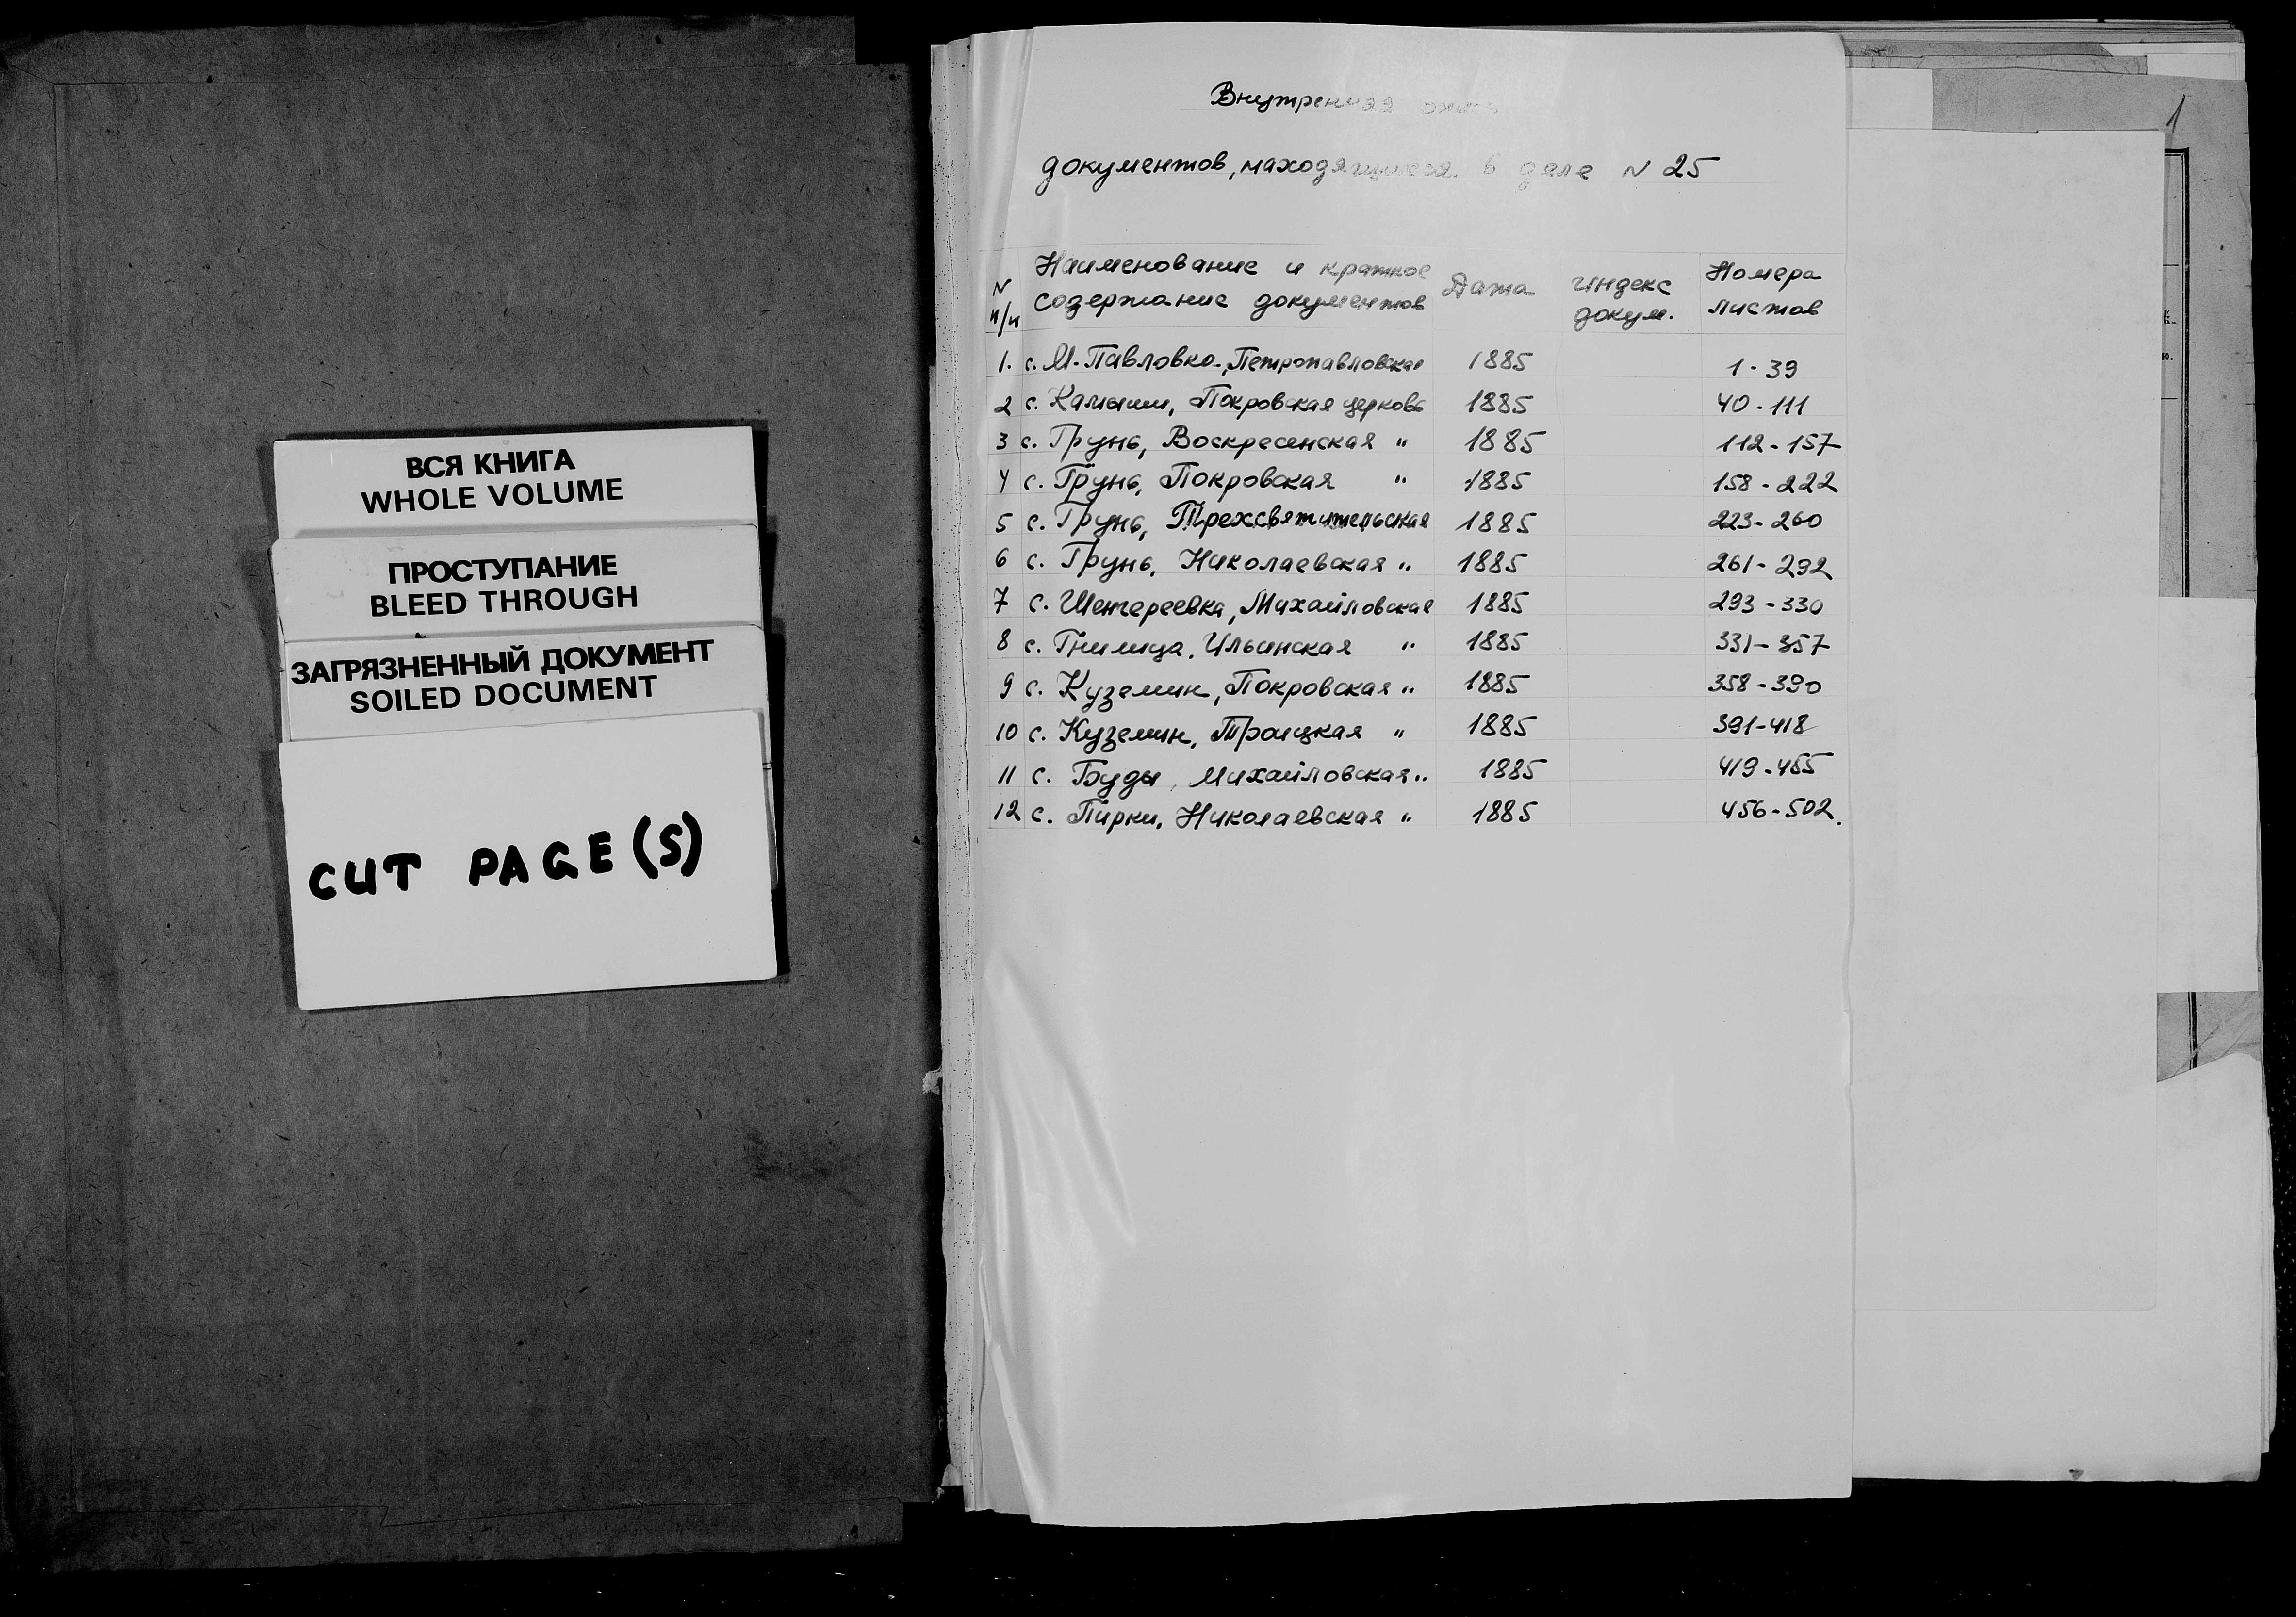 ВСЯ КНИГА
WHOLE VOLUME
ПРОСТУПАНИЕ
BLEED THROUGH
ЗАГРЯЗНЕННЫЙ ДОКУМЕНТ
SOILED DOCUMENT
CUT PAGE(S)
Внутренняя опись
документов, находящихся в деле N 25
N п/п Наименование и краткое содержание документов Дата индекс докум. Номера листов
1. с. М-Павловка, Петропавловская 1885 1-39
2 с. Камыши, Покровская церковь 1885 40-111
3 с. Грунь, Воскресенская " 1885 112-157
4 с. Грунь, Покровская " 1885 158-222
5 с. Грунь, Трехсвятительская 1885 223-260
6 с. Грунь, Николаевская " 1885 261-292
7 с. Шенгереевка, Михайловская 1885 293-330
8 с. Гнилица, Ильинская " 1885 331-357
9 с. Куземин, Покровская " 1885 358-390
10 с. Куземин, Троицкая " 1885 391-418
11 с. Буды, Михайловская " 1885 419-455
12 с. Пирки, Николаевская " 1885 456-502.
1